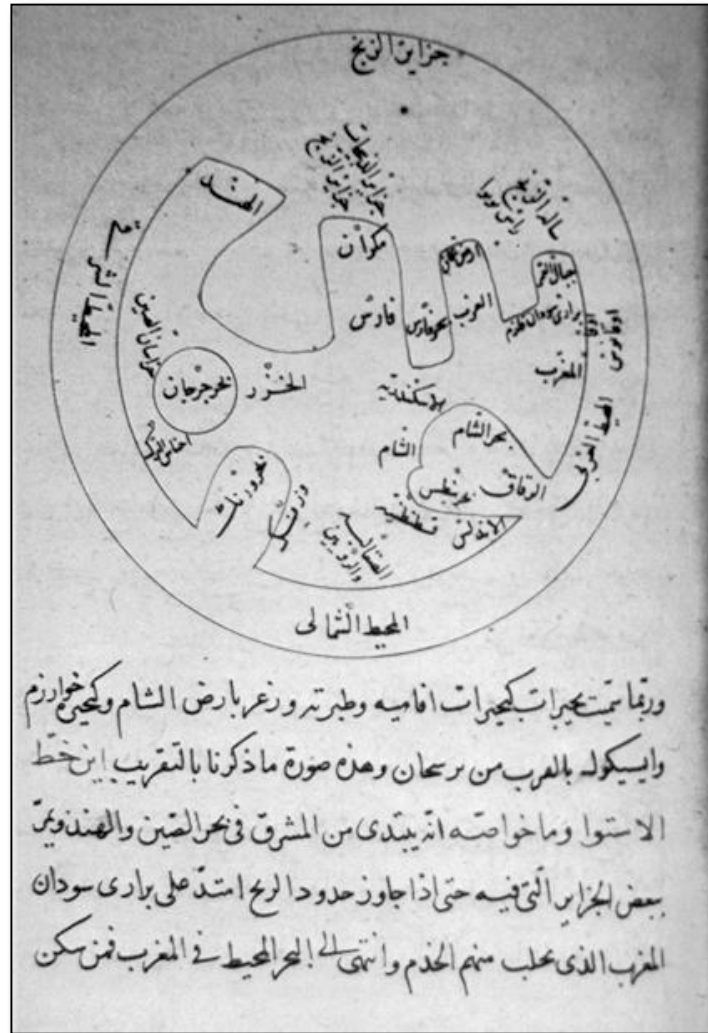 جزاير الزنج
جزاير الديبجات
جزاير الزنج
سفالة الزنج
الهند
مكران
ارض
جبال القمر
المحيط الشرقى
خراسان الصين
فارس
بحر فارس
العرب
برارى سودان
المغرب
بحر جرجان
الخزر
الاسكندرية
بحر الشام
الشام
الزقاق
بحر نيطس
المحيط الغربى
بحر ورنك
قسطنطنية
الاندلس
الصقالبة
والروس
المحيط الشمالى
وربما سميت بحيرات كبحيرات افاميه وطبرته وزغر بارض الشام وكبحيرة خوارزم
وايسيكول بالقرب من برسخان وهذه صورة ما ذكرنا بالتقريب اين خط
الاستوا وما خواصه انه يبتدى من المشرق فى بحر الصين والهند ويمر
ببعض الجزاير التى فيه حتى اذا جاوز حدود الزنج امتد على برارى سودان
المغرب الذى يجلب منهم الخدم وانتهى الى البحر المحيط فى المغرب فمن سكن